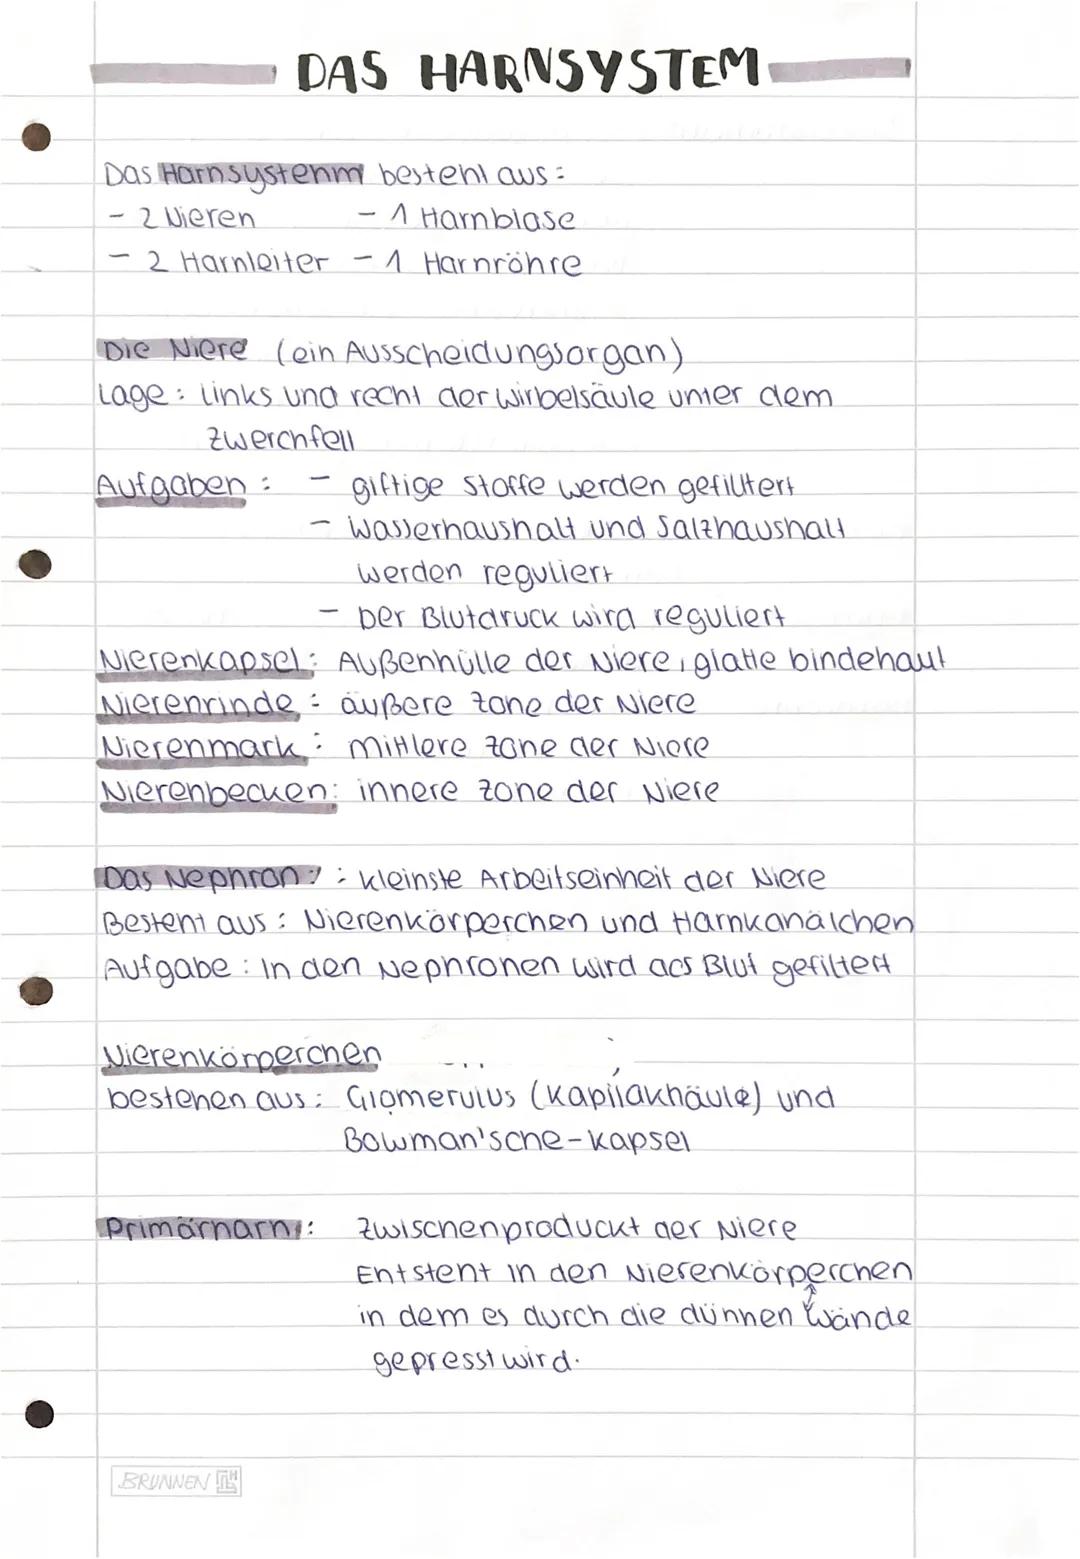 DAS HARNSYSTEM
Das Harnsystenm besteht aus:
- 2 Nieren - 1 Harnblase
- 2 Harnleiter - 1 Harnröhre
Die Niere (ein Ausscheidungsorgan)
Lage: links und recht der Wirbelsäule unter dem
Zwerchfell
Aufgaben: - giftige Stoffe werden gefilltert
- Wasserhaushalt und Salzhaushalt
werden reguliert
- Der Blutdruck wird reguliert
Nierenkapsel: Außenhülle der Niere, glatte bindehaut
Nierenrinde: äußere zone der Niere
Nierenmark: mittlere zone der Niere
Nierenbecken: innere zone der Niere
Das Nephron: kleinste Arbeitseinheit der Niere
Besteht aus: Nierenkörperchen und Harnkanälchen
Aufgabe: In den Nephronen wird das Blut gefiltert
Nierenkörperchen
bestehen aus: Glomerulus (Kapillaknäule) und
Bowman'sche-Kapsel
Primärharn: Zwischenproduckt der Niere
Entsteht in den Nierenkörperchen
in dem es durch die dünnen Wände
gepresst wird.
BRUNNEN